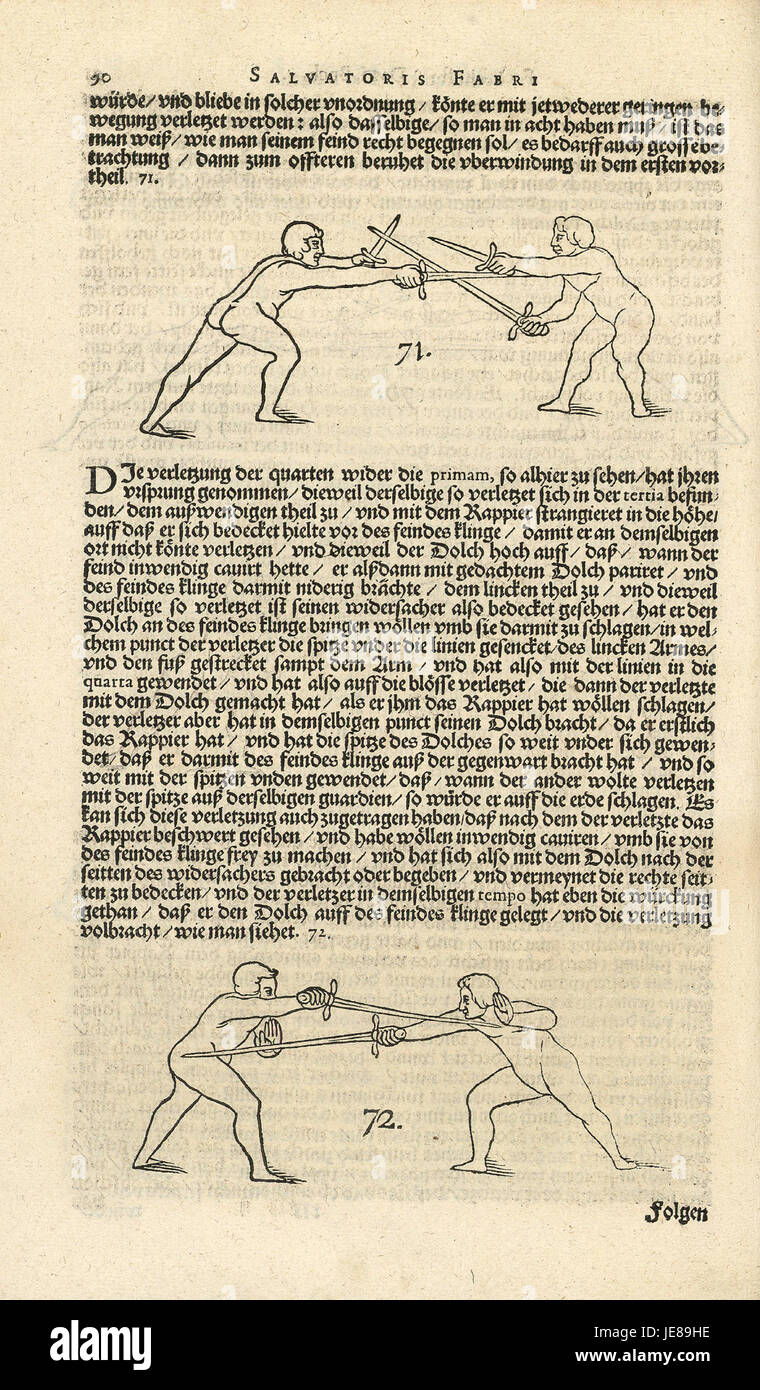 90 SALVATORIS FABRI
würde/ vnd bliebe in solcher vnordnung / könte er mit jetwederer geringen be-
wegung verletzet werden: also dasselbige/ so man in acht haben muß/ ist das
man weiß/ wie man seinem feind recht begegnen sol/ es bedarff auch grosse be-
trachtung / dann zum offteren beruhet die vberwindung in dem ersten vor-
theil. 71.
71.
DIe verletzung der quarten wider die primam, so alhier zu sehen/ hat jhren
vrsprung genommen/ dieweil derselbige so verletzet sich in der tertia befun-
den/ dem außwendigen theil zu / vnd mit dem Rappier strangieret in die höhe/
auff daß er sich bedecket hielte vor des feindes klinge / damit er an demselbigen
ort nicht könte verletzen / vnd dieweil der Dolch hoch auff / daß / wann der
feind inwendig cavirt hette / er alßdann mit gedachtem Dolch pariret / vnd
des feindes klinge darmit niderig brächte / dem lincken theil zu / vnd dieweil
derselbige so verletzet ist seinen widersacher also bedecket gesehen / hat er den
Dolch an des feindes klinge bringen wöllen vmb sie darmit zu schlagen/ in wel-
chem punct der verletzer die spitze vnder die linien gesencket/ des lincken Armes/
vnd den fuß gestrecket sampt dem Arm / vnd hat also mit der linien in die
quarta gewendet / vnd hat also auff die blösse verletzet / die dann der verletzte
mit dem Dolch gemacht hat / als er jhm das Rappier hat wöllen schlagen/
der verletzer aber hat in demselbigen punct seinen Dolch bracht / da er erstlich
das Rappier hat / vnd hat die spitze des Dolches so weit vnder sich gewen-
det/ daß er darmit des feindes klinge auß der gegenwart bracht hat / vnd so
weit mit der spitzen vnden gewendet/ daß/ wann der ander wolte verletzen
mit der spitze auß derselbigen guardien/ so würde er auff die erde schlagen. Es
kan sich diese verletzung auch zugetragen haben/ daß nach dem der verletzte das
Rappier beschwert gesehen / vnd habe wöllen inwendig caviren / vmb sie von
des feindes klinge frey zu machen / vnd hat sich also mit dem Dolch nach der
seitten des widersachers gebracht oder begeben / vnd vermeynet die rechte seit-
ten zu bedecken/ vnd der verletzer in demselbigen tempo hat eben die würckung
gethan / daß er den Dolch auff des feindes klinge gelegt / vnd die verletzung
volbracht / wie man siehet. 72.
72.
Folgen
alamy
Image ID: JE89HE
www.alamy.com